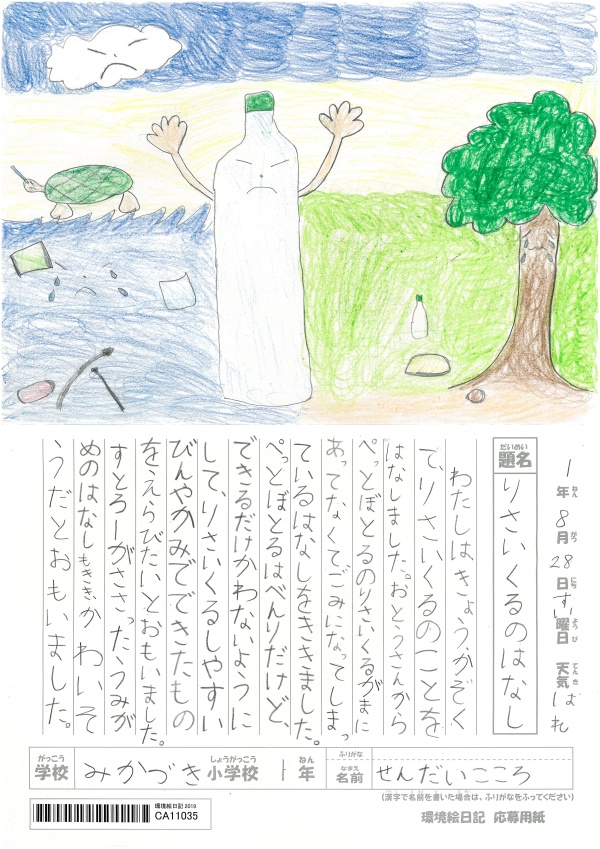 1年 8月 28日 すい曜日 天気 はれ
ねん がつ にち ようび てんき
だいめい
題名 りさいくるのはなし
わたしはきょうかぞく
で、りさいくるのことを
はなしました。おとうさんから
ぺっとぼとるのりさいくるがまに
あってなくてごみになってしまっ
ているはなしをききました。
ぺっとぼとるはべんりだけど、
できるだけかわないように
して、りさいくるしやすい
びんやかみでできたもの
をえらびたいとおもいました。
すとろーがささったうみが
めのはなしもきき、かわいそ
うだとおもいました。
がっこう しょうがっこう ねん ふりがな
学校 みかづき 小学校 1年
なまえ
名前 せんだいこころ
(漢字で名前を書いた場合は、ふりがなをふってください)
環境絵日記 2019
CA11035
環境絵日記 応募用紙